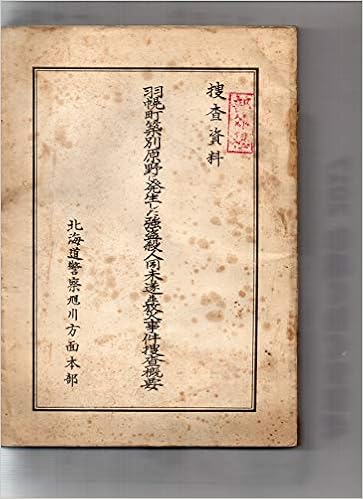 捜査資料
羽幌町築別原野に発生した強盗殺人同未遂事件捜査概要
北海道警察旭川方面本部